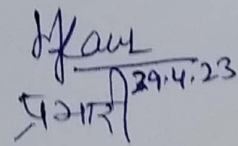 29.4.23
प्रभारी